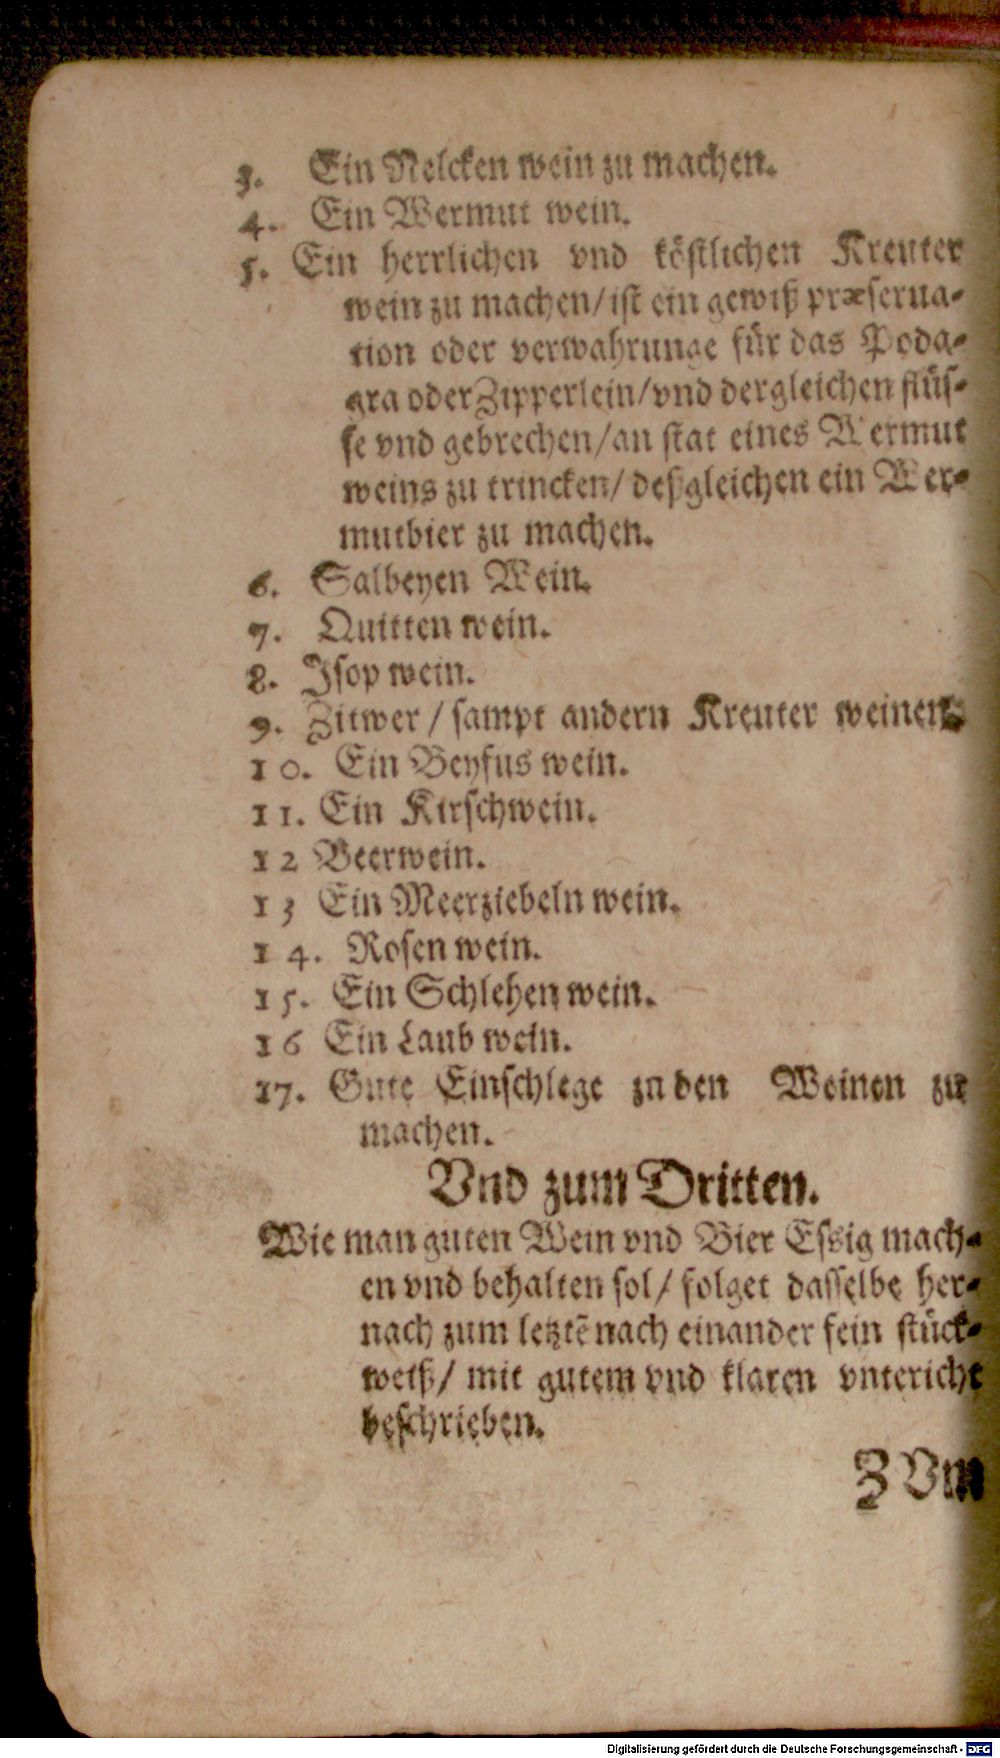 3. Ein Nelcken wein zu machen.
4. Ein Wermut wein.
5. Ein herrlichen vnd köstlichen Kreuter
wein zu machen/ ist ein gewiß præserua-
tion oder verwahrunge für das Poda-
gra oder Zipperlein/ vnd dergleichen flüs-
se vnd gebrechen/ an stat eines Wermut
weins zu trincken/ deßgleichen ein Wer-
mutbier zu machen.
6. Salbeyen Wein.
7. Quitten wein.
8. Jsop wein.
9. Zitwer / sampt andern Kreuter weinen.
10. Ein Beyfus wein.
11. Ein Kirschwein.
12 Beerwein.
13 Ein Meerziebeln wein.
14. Rosen wein.
15. Ein Schlehen wein.
16 Ein Laub wein.
17. Gute Einschlege zu den Weinen zu
machen.
Vnd zum Dritten.
Wie man guten Wein vnd Bier Essig mach-
en vnd behalten sol/ folget dasselbe her-
nach zum letztẽ nach einander fein stück-
weiß/ mit gutem vnd klaren vntericht
beschrieben.
ZVm
Digitalisierung gefördert durch die Deutsche Forschungsgemeinschaft - DFG